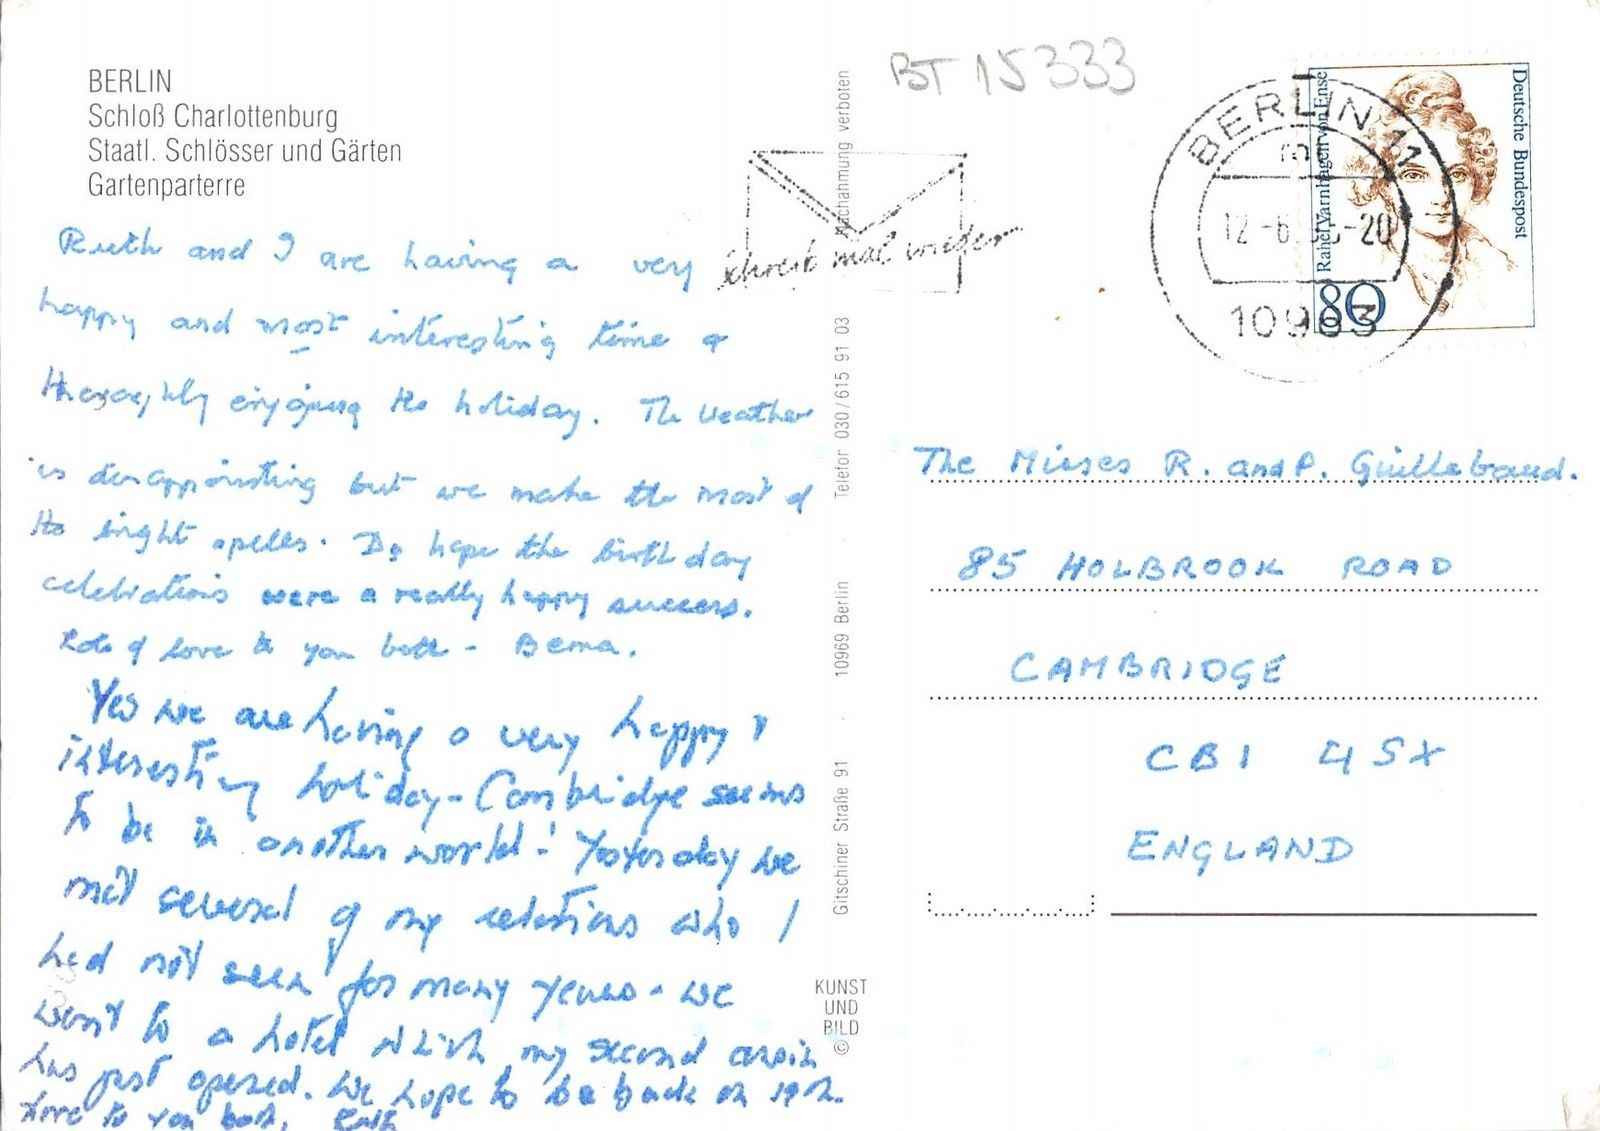 BERLIN
Schloß Charlottenburg
Staatl. Schlösser und Gärten
Gartenparterre
Ruth and I are having a very
happy and most interesting time &
thoroughly enjoying the holiday. The weather
is disappointing but we make the most of
the bright spells. Do hope the birthday
celebrations were a really happy success.
Lots of love to you both - Bema.
Yes we are having a very happy &
interesting holiday - Cambridge seems
to be in another world! Yesterday we
met several of my relations who I
had not seen for many years - we
went to a hotel which my second cousin
has just opened. We hope to be back on 19th.
Love to you both, Ruth
Nachahmung verboten
Telefon 030/615 91 03
10969 Berlin
Gitschiner Straße 91
KUNST
UND
BILD
©
BT 15333
Schreib mal wieder
BERLIN 11
m
12-6 -20
10963
Deutsche Bundespost
Rahel Varnhagen von Ense
80
The Misses R. and P. Guillebaud.
85 HOLBROOK ROAD
CAMBRIDGE
CB1 4SX
ENGLAND